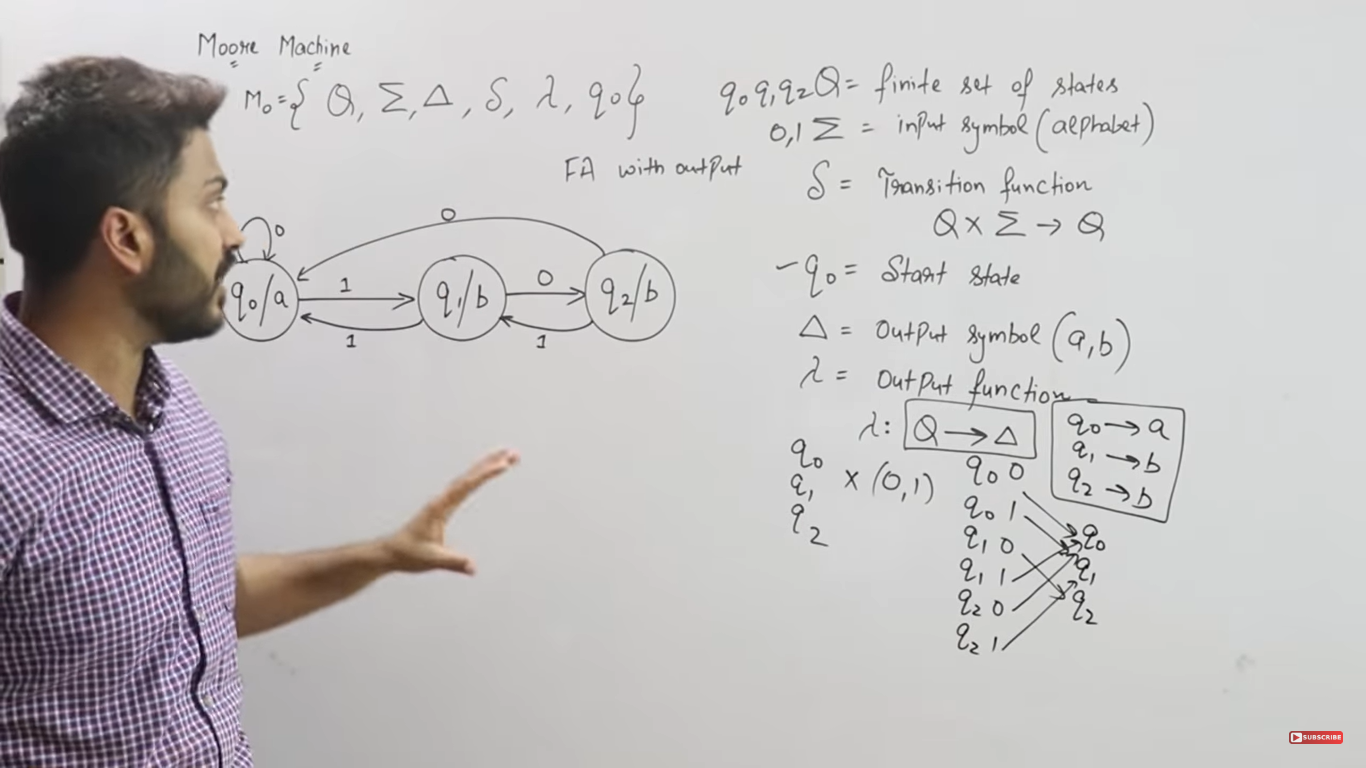 Moore Machine
M₀ = { Q, Σ, Δ, δ, λ, q₀}
FA with output
0
0
1
0
q₀/a
q₁/b
q₂/b
1
1
q₀ q₁ q₂ Q = finite set of states
0,1 Σ = input symbol (alphabet)
δ = Transition function
Q × Σ → Q
- q₀ = Start state
Δ = Output symbol (a,b)
λ = Output function
λ: Q → Δ
q₀ → a
q₁ → b
q₂ → b
q₀
q₁ × (0,1)
q₂
q₀ 0
q₀ 1
q₁ 0
q₁ 1
q₂ 0
q₂ 1
q₀
q₁
q₂
SUBSCRIBE